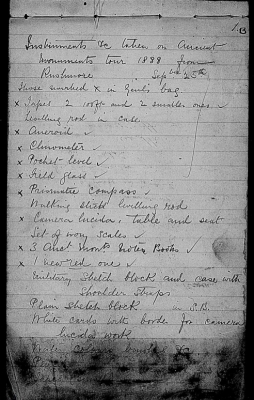 1. B
Instruments &c taken on Ancient
Monuments tour 1888 from
Rushmore Sept 25th
Those marked x in Genl's bag
x Tapes 2 100ft and 2 smaller ones ✓
Levelling rod in case
x Aneroid ✓
x Clinometer ✓
x Pocket level ✓
x Field glass ✓
x Prismatic Compass ✓
Walking stick levelling rod
x Camera lucida, table and seat
Set of ivory scales ✓
x 3 Anct Monts Notes Books ✓
x 1 new red one ✓
Military Sketch block and case with
Shoulder Straps
Plain Sketch block in S.B.
White cards with border for camera
lucida work